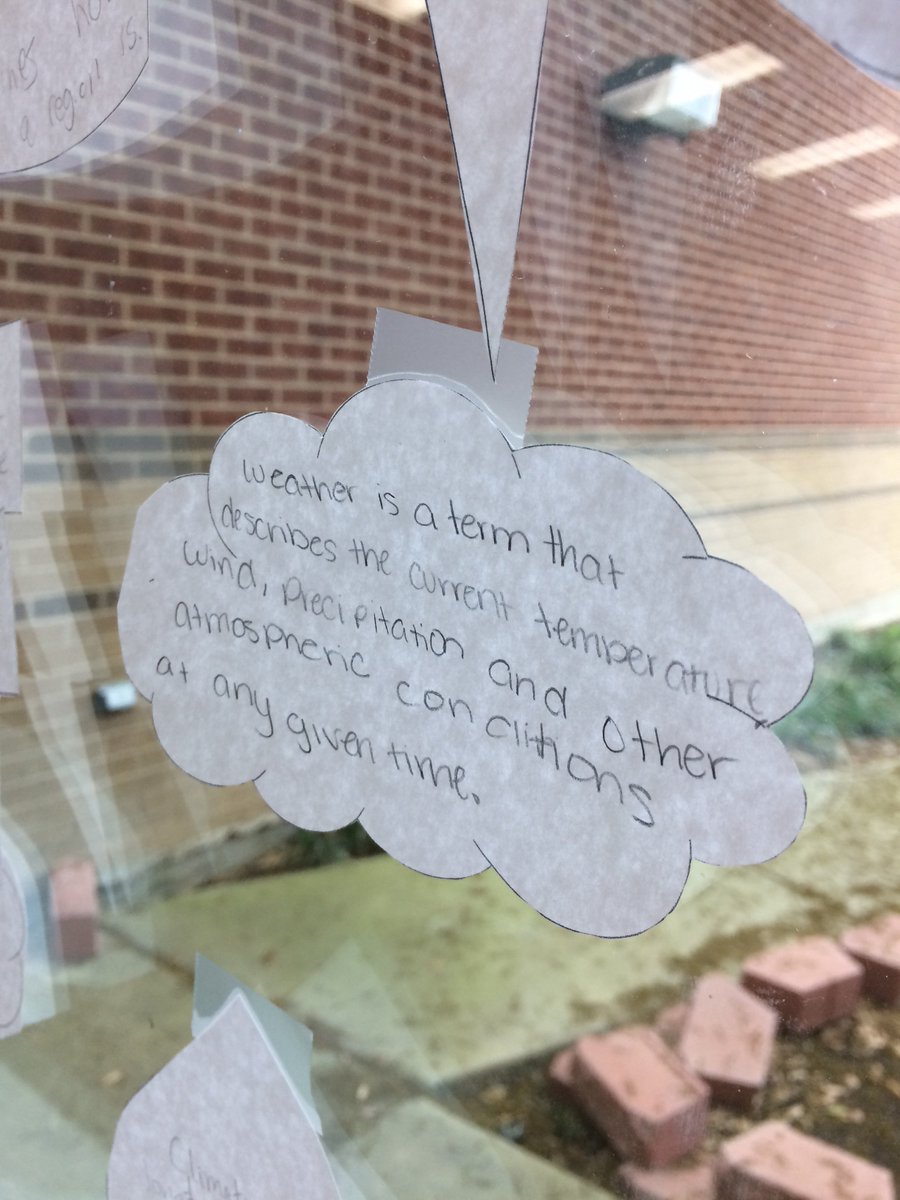 a region is.
weather is a term that
describes the current temperature
wind, precipitation and other
atmospheric conditions
at any given time.